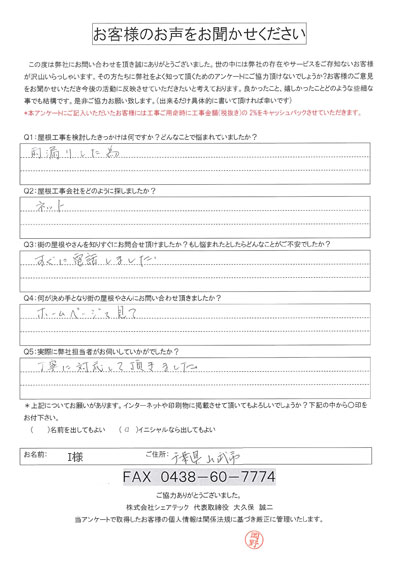 お客様のお声をお聞かせください
この度は弊社にお問い合わせを頂き誠にありがとうございました。世の中には弊社の存在やサービスをご存知ないお客様
が沢山いらっしゃいます。その方たちに弊社をよく知って頂くためのアンケートにご協力頂けないでしょうか?お客様のご意見
をお聞かせいただき今後の活動に反映させていただきたいと考えております。良かったこと、嬉しかったことどのような些細な
事でも結構です。是非ご協力お願い致します。(出来るだけ具体的に書いて頂ければ幸いです)
*本アンケートにご記入いただいたお客様には工事ご用命時に工事金額(税抜き)の2%をキャッシュバックさせていただきます。
Q1:屋根工事を検討したきっかけは何ですか?どんなことで悩まれていましたか?
雨漏りした為
Q2:屋根工事会社をどのように探しましたか?
ネット
Q3:街の屋根やさんを知りすぐにお問合せ頂けましたか?もし悩まれたとしたらどんなことがご不安でしたか?
すぐに電話しました
Q4:何が決め手となり街の屋根やさんにお問い合わせ頂きましたか?
ホームページを見て
Q5:実際に弊社担当者がお伺いしていかがでしたか?
丁寧に対応して頂きました
*上記についてお願いがあります。インターネットや印刷物に掲載させて頂いてもよろしいでしょうか?下記の中から〇印を
お付下さい。
( )名前を出してもよい (〇)イニシャルなら出してもよい
お名前: I様 ご住所: 千葉県山武市
FAX 0438-60-7774
ご協力ありがとうございました。
株式会社シェアテック 代表取締役 大久保 誠二
当アンケートで取得したお客様の個人情報は関係法規に基づき厳正に管理いたします。